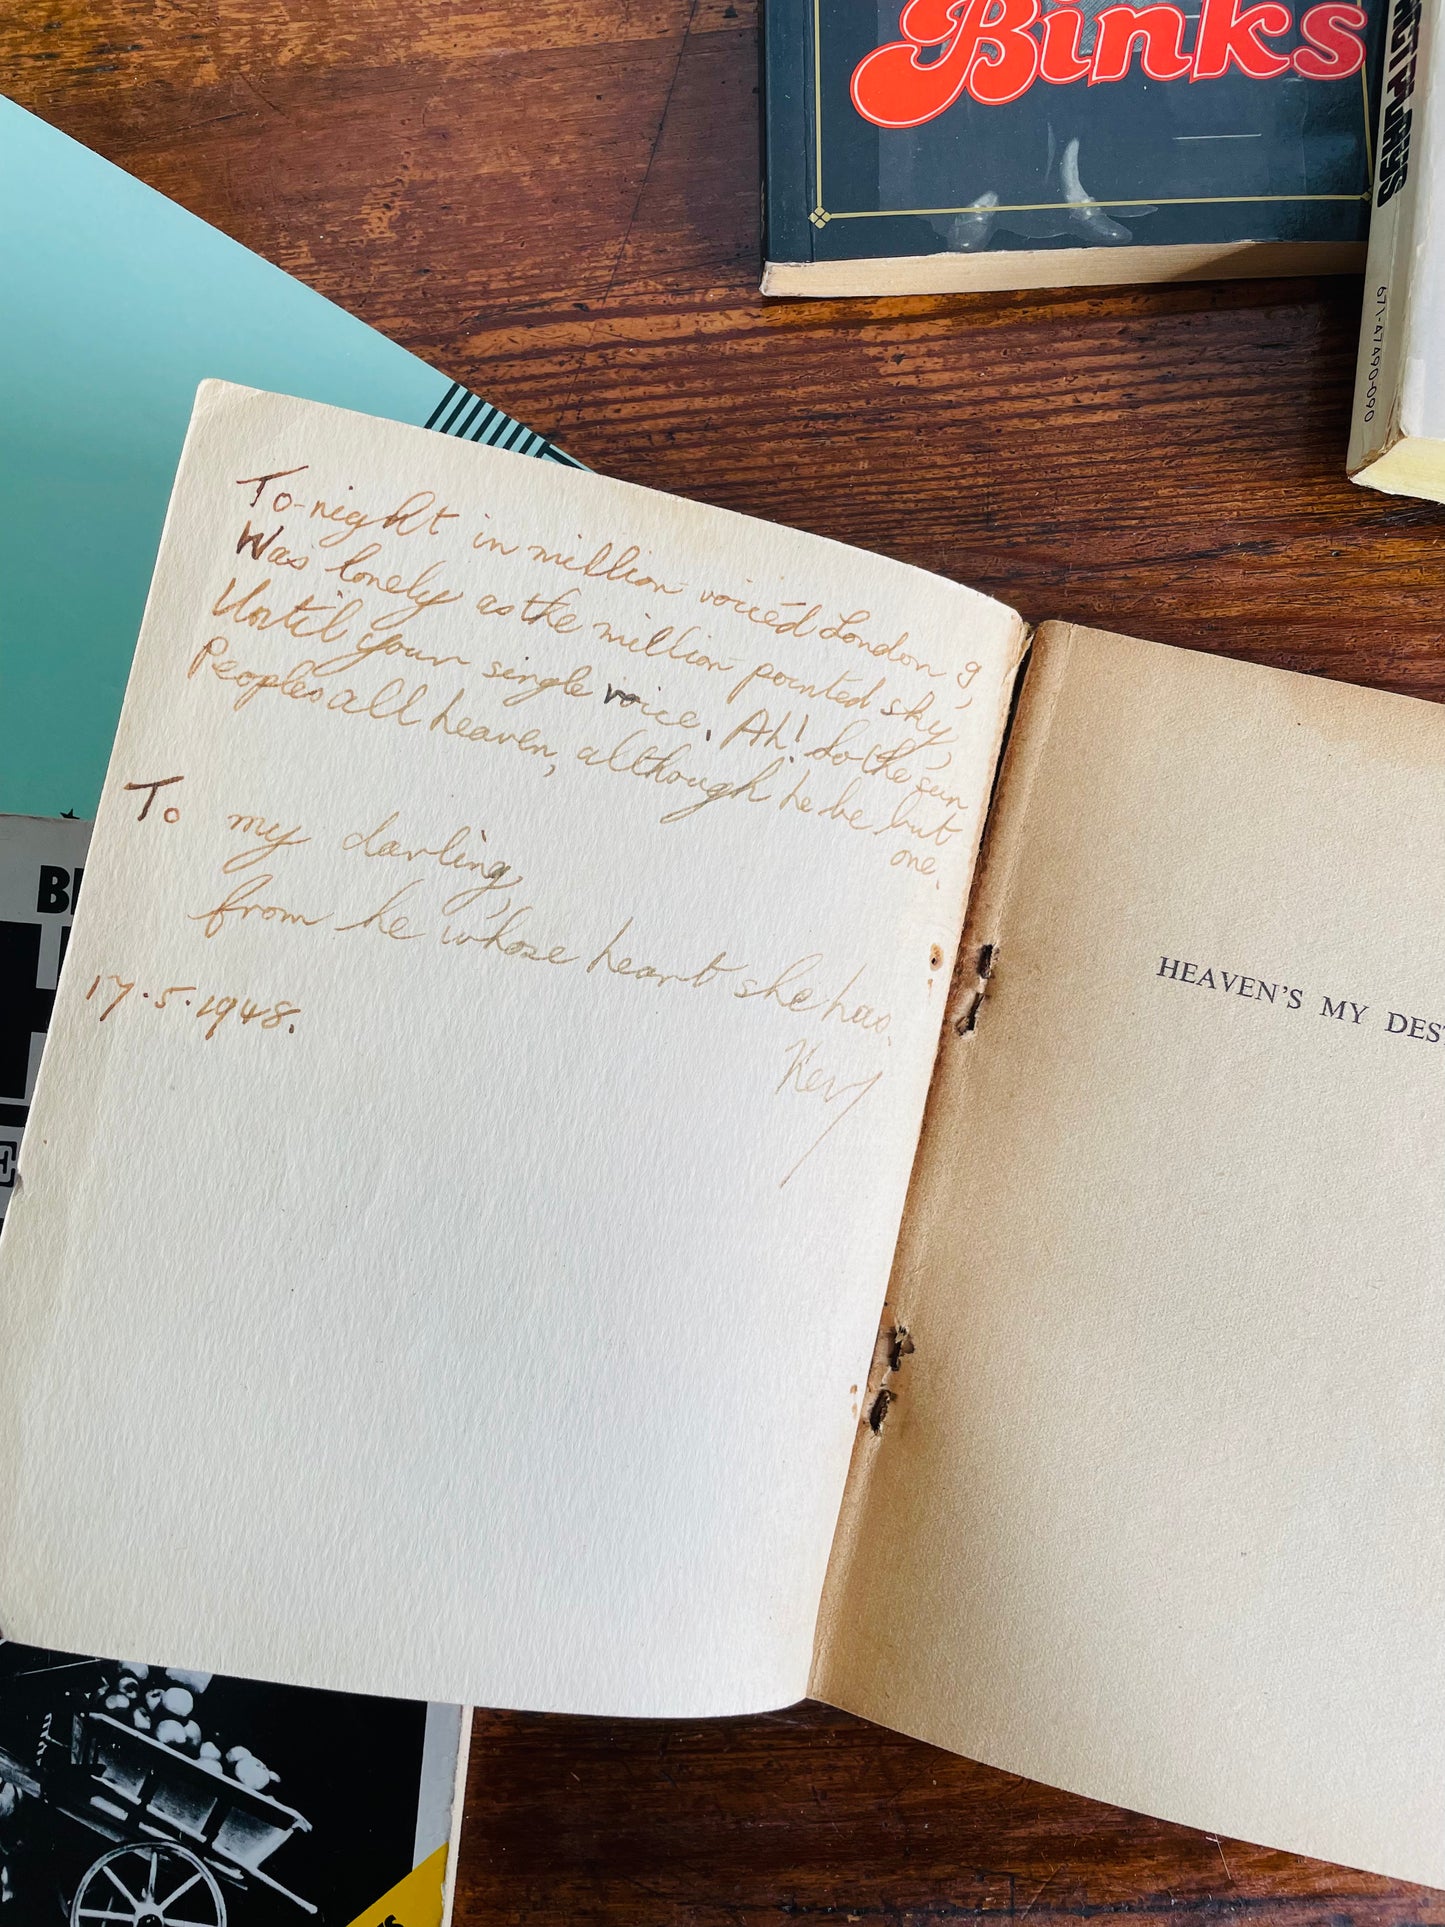 Binks
671-47490-090
To-night in million-voicéd London I
Was lonely as the million-pointed sky,
Until your single voice. Ah! So the sun
Peoples all heaven, although he be but
one.
To my darling,
from he whose heart she has.
Kev
17.5.1948.
HEAVEN'S MY DES
B
E